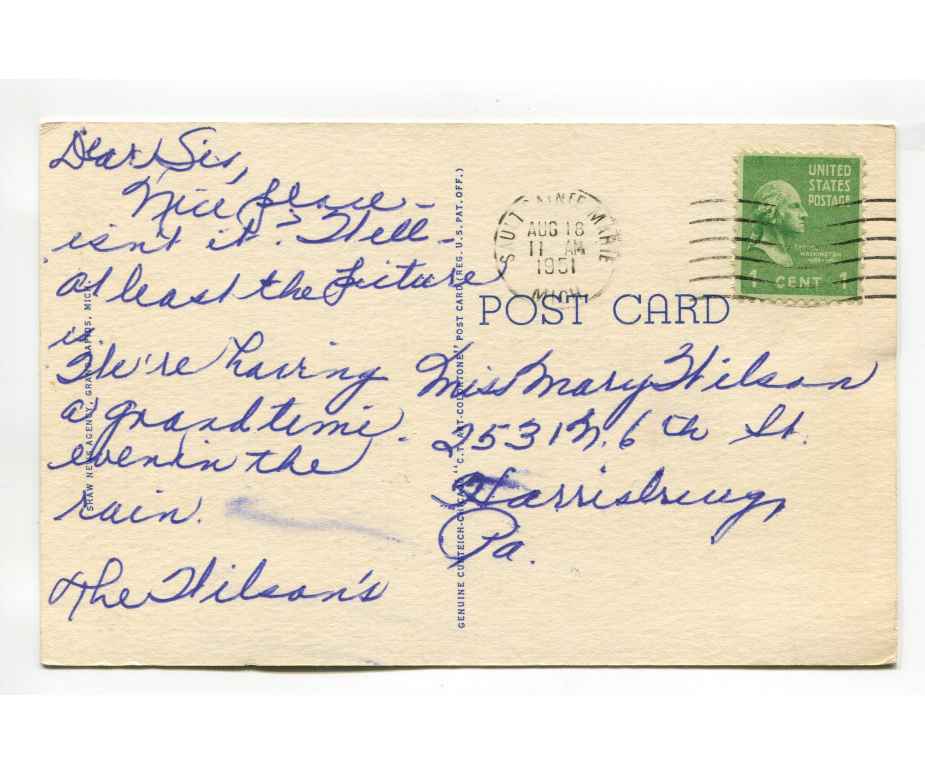 Dear Sis,
Nice place -
isn't it? Well -
at least the picture
is.
We're having
a grand time
even in the
rain.
The Wilson's
SHAW NEWS AGENCY, GRAND RAPIDS, MICH.
GENUINE CURTEICH-CHICAGO "C.T. ART-COLORTONE" POST CARD (REG. U.S. PAT. OFF.)
SAULT SAINTE MARIE
AUG 18
11 AM
1951
MICH
UNITED
STATES
POSTAGE
WASHINGTON
1 CENT 1
POST CARD
Miss Mary Wilson
2531 N. 6th St.
Harrisburg,
Pa.